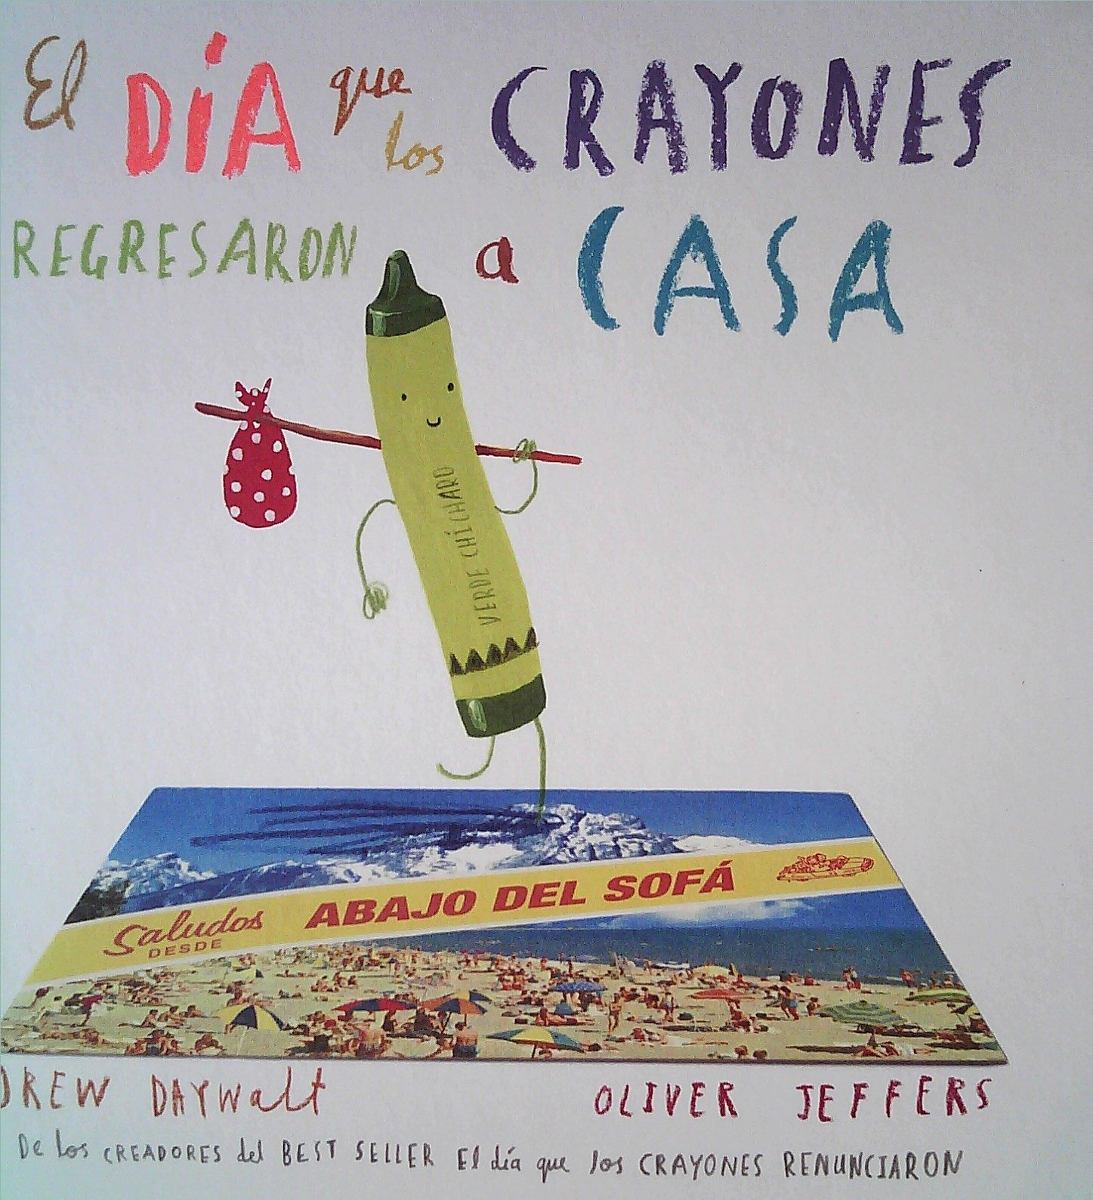 El DÍA que los CRAYONES
REGRESARON a CASA
VERDE CHÍCHARO
Saludos DESDE ABAJO DEL SOFÁ
DREW DAYWALT OLIVER JEFFERS
De los CREADORES del BEST SELLER El día que los CRAYONES RENUNCIARON